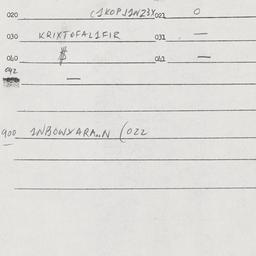 020 C1KOPJ1NZ3X 021 O
030 KRIXTOFAL1FIR 031 —
040 $ 041 —
042 —
900 1NBOWYARA..N (022